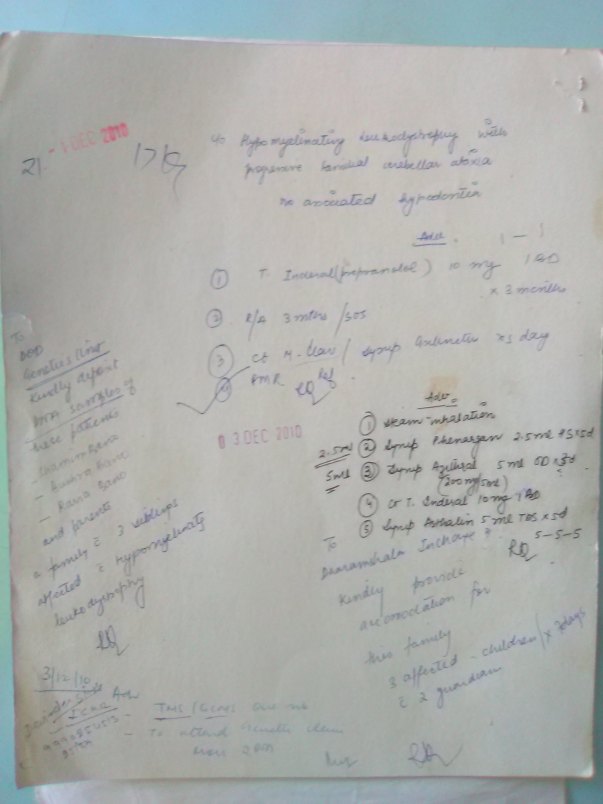 - 1 DEC 2010
Hypomyelinating leukodystrophy with
progressive familial cerebellar ataxia
no associated hypodontia
Adv.
① T. Inderal (propranolol) 10 mg 1 BD
x 3 months
② R/A 3 mths / SOS
③ Ct M-Clav / Syrup x 5 day
④ PMR
To
DOD
Genetics Unit
Kindly deposit
DNA samples of
these patients
- Shamim Bano
- Bano
- Rana Bano
and parents
a family c̄ 3 siblings
affected c̄ Hypomyelinating
leukodystrophy
3/12/10
03 DEC 2010
Adv.
① Steam inhalation
2.5ml ② Syrup Phenergan 2.5 ml HS x 5d
5ml ③ Syrup Azithral 5 ml OD x 3d
(200mg/5ml)
④ Ct T. Inderal 10 mg 1 BD
⑤ Syrup Asthalin 5 ml TDS x 5d
5-5-5
To
Dharamshala Incharge
Kindly provide
accomodation for
this family
3 affected children / x 7 days
c̄ 2 guardian
- TMS/GCMS
- To attend Genetic
2 PM